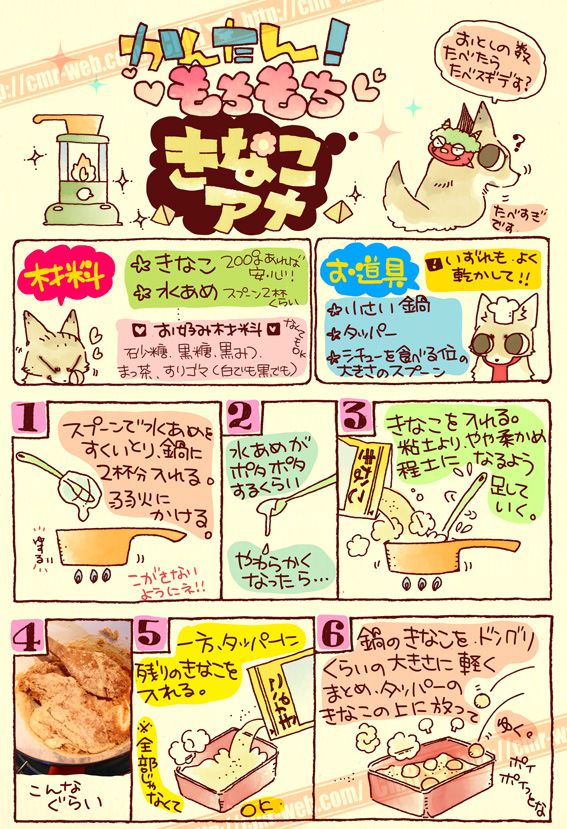 http://cmr-web.com
http://cmr-web.com
かんたん!
もちもち
きなこ
アメ
おとしの数
たべたら
たべスギデす?
?
たべすぎ
です
材料
きなこ 200gあれば
安心!!
水あめ スプーン2杯
ぐらい
お好み材料 なくてもOK
石少糖、黒糖、黒みつ、
まっ茶、すりゴマ(白でも黒でも)
お道具
いずれも、よく
乾かして!!
小さい鍋
タッパー
シチューを食べる位の
大きさのスプーン
1
スプーンで水あめを
すくいとり、鍋に
2杯分入れる。
弱火に
かける。
こがさない
ようにネ!!
2
水あめが
ポタポタ
するくらい
やわらかく
なったら…
3
きなこを入れる。
粘土より、やや柔かめ
程土に、なるよう
足して
いく。
きなこ
4
こんな
ぐらい
5
一方、タッパーに
残りのきなこを
入れる。
きなこ
※全部じゃなくて
OK
6
鍋のきなこを、ドングリ
くらいの大きさに軽く
まとめ、タッパーの
きなこの上に放って
ゆく。
ポイ
ポイッとな
http://cmr-web.com/
http://cmr-web.com/